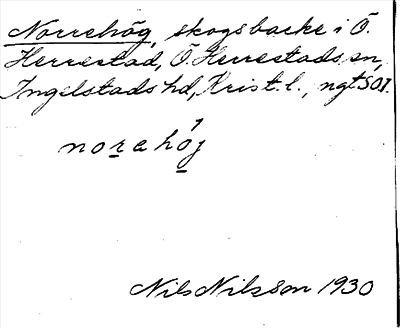 Norrehög, skogsbacke i Ö.
Herrestad, Ö. Herrestads sn,
Ingelstads hd, Krist. l., ngt SO1.
norahöj
Nils Nilsson 1930